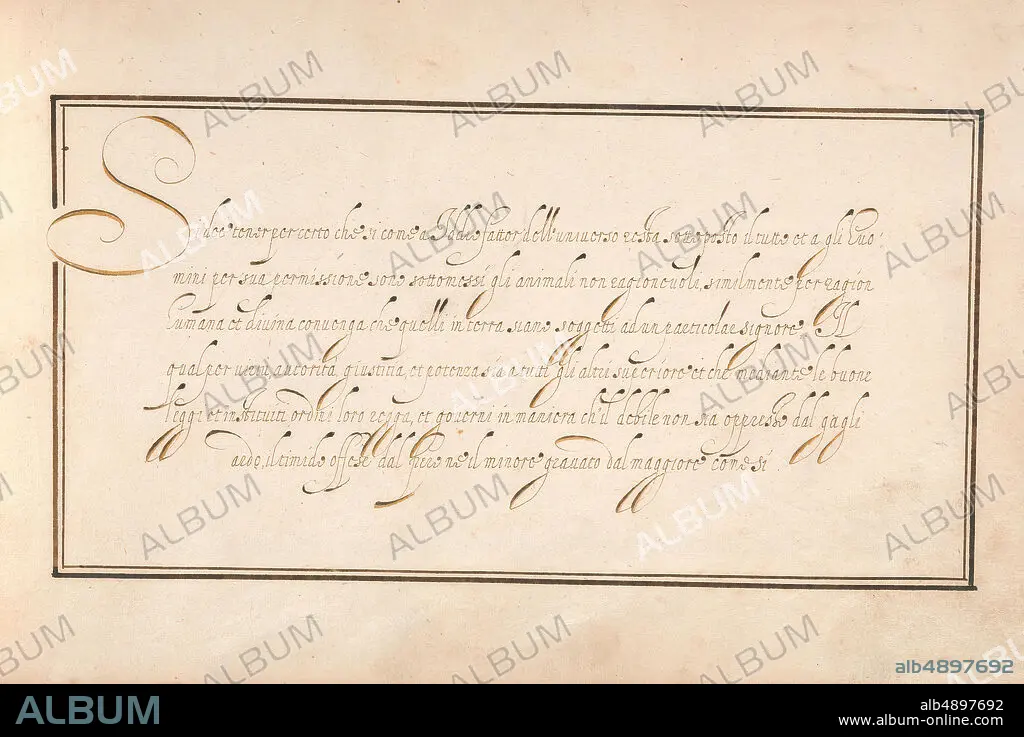 Si dee tener per certo che si come a Iddio fattor dell'universo resta sottoposto il tutto et a gli huo-
mini per sua permissione sono sottomessi gli animali non ragionevoli, similmente per ragion
humana et divina convenga che quelli in terra siano soggetti ad un particolar signore Il
qual per virtù, autorità, giustitia, et potenza sia a tutti gli altri superiore et che mediante le buone
leggi et instituiti ordini loro regga, et governi in maniera ch'il debile non sia oppresso dal gagli
ardo, il timido offeso dal feroce il minore gravato dal maggiore come si
ALBUM
alb4897692
ALBUM
alb4897692
www.album-online.com